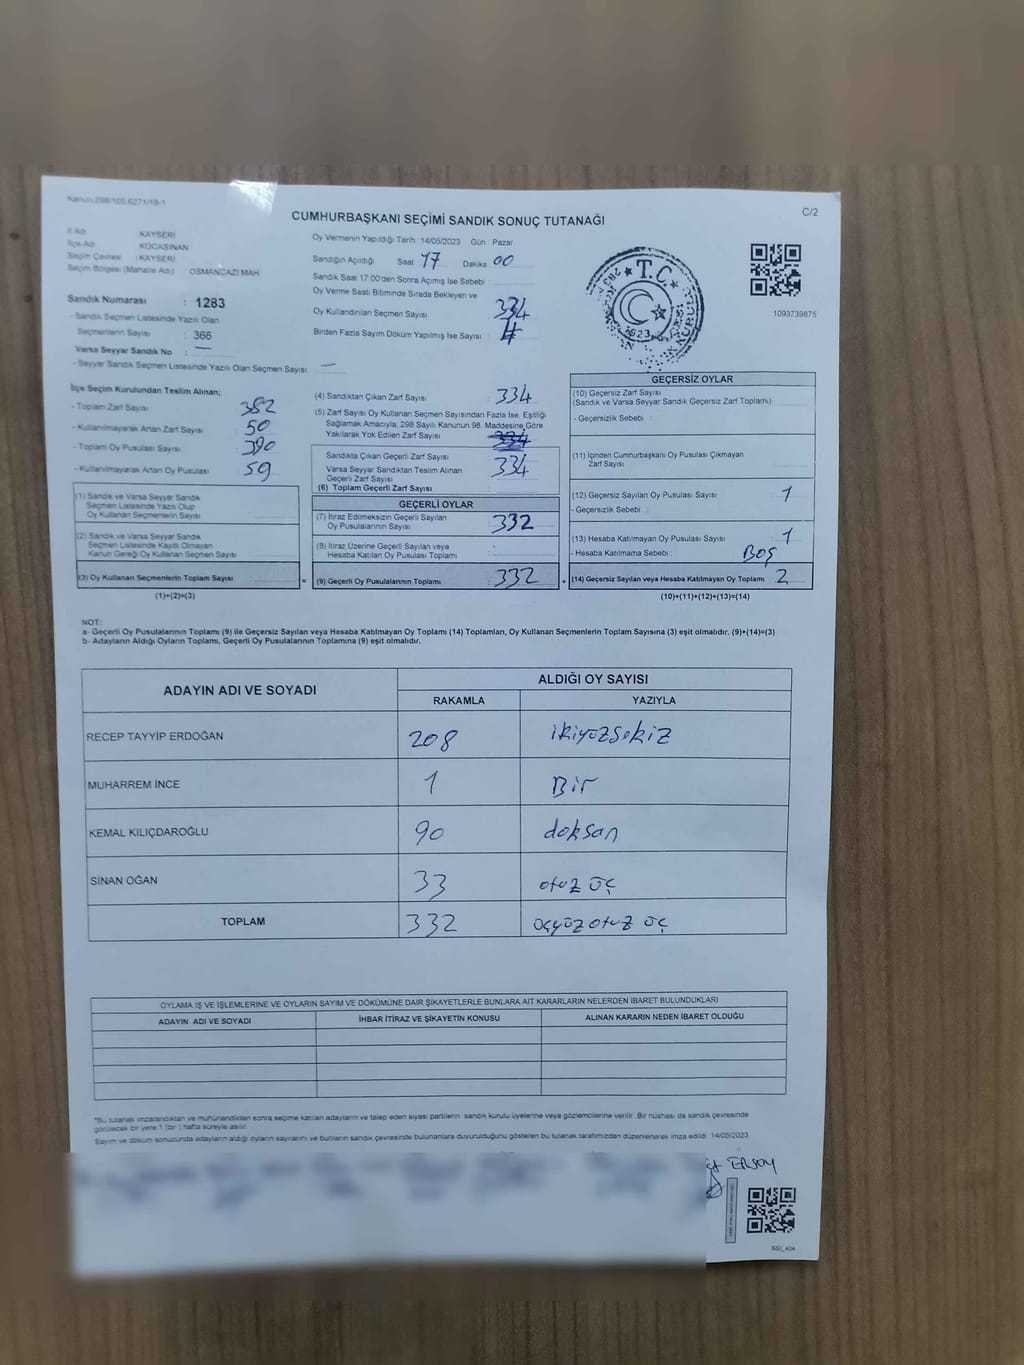 Kanun:298/105,6271/18-1
C/2
CUMHURBAŞKANI SEÇİMİ SANDIK SONUÇ TUTANAĞI
İl Adı : KAYSERİ
İlçe Adı : KOCASİNAN
Seçim Çevresi : KAYSERİ
Seçim Bölgesi (Mahalle Adı) : OSMANGAZİ MAH.
Sandık Numarası : 1283
- Sandık Seçmen Listesinde Yazılı Olan
Seçmenlerin Sayısı : 366
Varsa Seyyar Sandık No : —
- Seyyar Sandık Seçmen Listesinde Yazılı Olan Seçmen Sayısı: —
Oy Vermenin Yapıldığı Tarih : 14/05/2023 Gün : Pazar
Sandığın Açıldığı Saat : 17 Dakika : 00
Sandık Saat 17:00'den Sonra Açılmış İse Sebebi :
Oy Verme Saati Bitiminde Sırada Bekleyen ve
Oy Kullandırılan Seçmen Sayısı : 334
Birden Fazla Sayım Döküm Yapılmış İse Sayısı :
T.C.
1093739875
İlçe Seçim Kurulundan Teslim Alınan;
- Toplam Zarf Sayısı : 382
- Kullanılmayarak Artan Zarf Sayısı : 50
- Toplam Oy Pusulası Sayısı : 390
- Kullanılmayarak Artan Oy Pusulası : 59
(1) Sandık ve Varsa Seyyar Sandık
Seçmen Listesinde Yazılı Olup
Oy Kullanan Seçmenlerin Sayısı :
(2) Sandık ve Varsa Seyyar Sandık
Seçmen Listesinde Kayıtlı Olmayan
Kanun Gereği Oy Kullanan Seçmen Sayısı :
(3) Oy Kullanan Seçmenlerin Toplam Sayısı :
(1)+(2)=(3)
(4) Sandıktan Çıkan Zarf Sayısı : 334
(5) Zarf Sayısı Oy Kullanan Seçmen Sayısından Fazla İse, Eşitliği
Sağlamak Amacıyla, 298 Sayılı Kanunun 98. Maddesine Göre
Yakılarak Yok Edilen Zarf Sayısı : 334
Sandıkta Çıkan Geçerli Zarf Sayısı : 334
Varsa Seyyar Sandıktan Teslim Alınan
Geçerli Zarf Sayısı :
(6) Toplam Geçerli Zarf Sayısı :
GEÇERLİ OYLAR
(7) İtiraz Edilmeksizin Geçerli Sayılan
Oy Pusulalarının Sayısı : 332
(8) İtiraz Üzerine Geçerli Sayılan veya
Hesaba Katılan Oy Pusulası Toplamı :
= (9) Geçerli Oy Pusulalarının Toplamı : 332
GEÇERSİZ OYLAR
(10) Geçersiz Zarf Sayısı
(Sandık ve Varsa Seyyar Sandık Geçersiz Zarf Toplamı) :
- Geçersizlik Sebebi :
(11) İçinden Cumhurbaşkanı Oy Pusulası Çıkmayan
Zarf Sayısı :
(12) Geçersiz Sayılan Oy Pusulası Sayısı : 1
- Geçersizlik Sebebi :
(13) Hesaba Katılmayan Oy Pusulası Sayısı : 1
- Hesaba Katılmama Sebebi : Boş
+ (14) Geçersiz Sayılan veya Hesaba Katılmayan Oy Toplamı : 2
(10)+(11)+(12)+(13)=(14)
NOT:
a- Geçerli Oy Pusulalarının Toplamı (9) ile Geçersiz Sayılan veya Hesaba Katılmayan Oy Toplamı (14) Toplamları, Oy Kullanan Seçmenlerin Toplam Sayısına (3) eşit olmalıdır. (9)+(14)=(3)
b- Adayların Aldığı Oyların Toplamı, Geçerli Oy Pusulalarının Toplamına (9) eşit olmalıdır.
ADAYIN ADI VE SOYADI
ALDIĞI OY SAYISI
RAKAMLA YAZIYLA
RECEP TAYYİP ERDOĞAN 208 ikiyüzsekiz
MUHARREM İNCE 1 Bir
KEMAL KILIÇDAROĞLU 90 doksan
SİNAN OĞAN 33 otuz üç
TOPLAM 332 üçyüz otuz üç
OYLAMA İŞ VE İŞLEMLERİNE VE OYLARIN SAYIM VE DÖKÜMÜNE DAİR ŞİKAYETLERLE BUNLARA AİT KARARLARIN NELERDEN İBARET BULUNDUKLARI
ADAYIN ADI VE SOYADI İHBAR İTİRAZ VE ŞİKAYETİN KONUSU ALINAN KARARIN NEDEN İBARET OLDUĞU
*Bu tutanak imzalandıktan ve mühürlendikten sonra seçime katılan adayların ve talep eden siyasi partilerin sandık kurulu üyelerine veya gözlemcilerine verilir. Bir nüshası da sandık çevresinde
görülecek bir yere 1 (bir) hafta süreyle asılır.
Sayım ve döküm sonucunda adayların aldığı oyların sayılarını ve bunların sandık çevresinde bulunanlara duyurulduğunu gösteren bu tutanak tarafımızdan düzenlenerek imza edildi. 14/05/2023
Ersoy
SSI_424